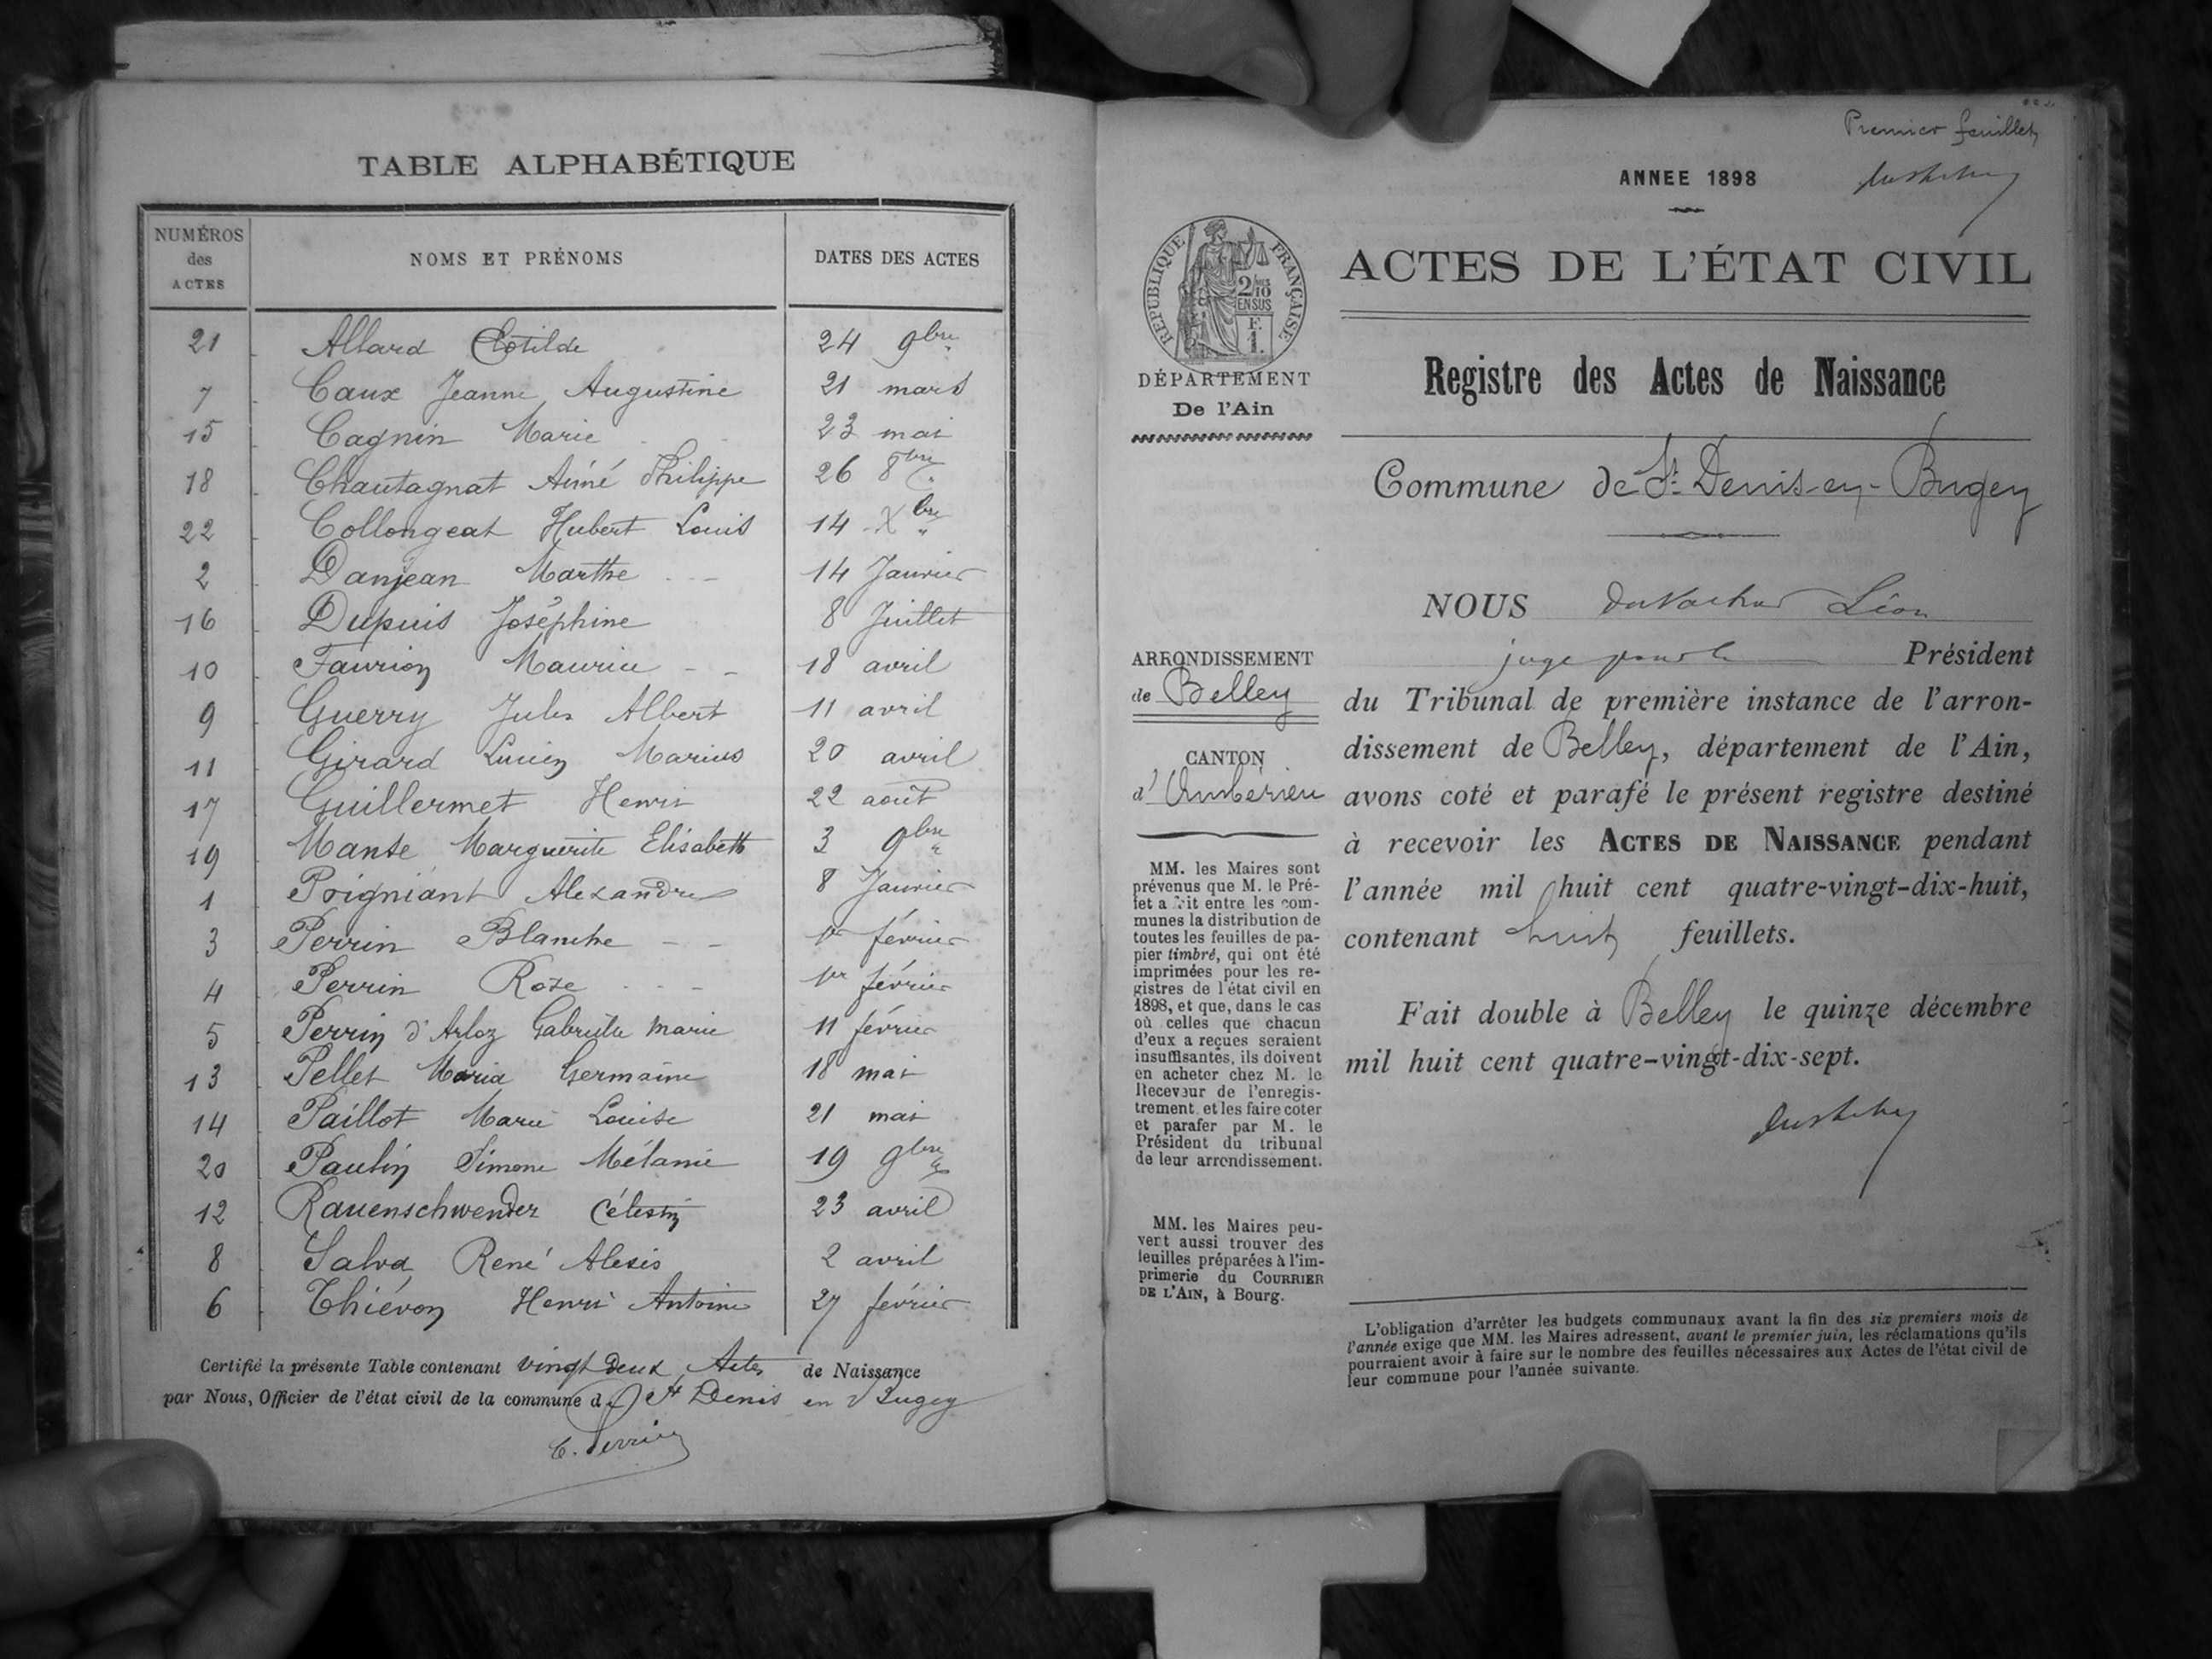 TABLE ALPHABÉTIQUE
NUMÉROS des ACTES NOMS ET PRÉNOMS DATES DES ACTES
21 Allard Clotilde 24 9bre
7 Caux Jeanne Augustine 21 mars
15 Cagnin Marie 23 mai
18 Chautagnat Aimé Philippe 26 8bre
22 Collongeat Hubert Louis 14 Xbre
2 Danjean Marthe 14 Janvier
16 Dupuis Joséphine 8 Juillet
10 Faurion Maurice 18 avril
9 Guerry Jules Albert 11 avril
11 Girard Lucien Marius 20 avril
17 Guillermet Henri 22 août
19 Manse Marguerite Elisabeth 3 9bre
1 Poigniant Alexandre 8 Janvier
3 Perrin Blanche 1er février
4 Perrin Rose 1er février
5 Perrin d'Arloz Gabrielle Marie 11 février
13 Pellet Maria Germaine 18 mai
14 Paillot Marie Louise 21 mai
20 Paulin Simone Mélanie 19 9bre
12 Rauenschwender Célestin 23 avril
8 Salva René Alexis 2 avril
6 Thiévon Henri Antoine 27 février
Certifié la présente Table contenant vingt deux Actes de Naissance
par Nous, Officier de l'état civil de la commune de St Denis en Bugey
Perrin
Premier feuillet
ANNEE 1898
REPUBLIQUE FRANÇAISE
2/10 EN SUS
F. 1.
ACTES DE L'ÉTAT CIVIL
DÉPARTEMENT
De l'Ain
Registre des Actes de Naissance
Commune de St Denis-en-Bugey
NOUS Léon
juge pour le Président
ARRONDISSEMENT
de Belley
CANTON
d'Ambérieu
du Tribunal de première instance de l'arron-
dissement de Belley, département de l'Ain,
avons coté et parafé le présent registre destiné
à recevoir les ACTES DE NAISSANCE pendant
l'année mil huit cent quatre-vingt-dix-huit,
contenant huit feuillets.
Fait double à Belley le quinze décembre
mil huit cent quatre-vingt-dix-sept.
MM. les Maires sont
prévenus que M. le Pré-
fet a fait entre les com-
munes la distribution de
toutes les feuilles de pa-
pier timbré, qui ont été
imprimées pour les re-
gistres de l'état civil en
1898, et que, dans le cas
où celles que chacun
d'eux a reçues seraient
insuffisantes, ils doivent
en acheter chez M. le
Receveur de l'enregis-
trement et les faire coter
et parafer par M. le
Président du tribunal
de leur arrondissement.
MM. les Maires peu-
vent aussi trouver des
feuilles préparées à l'im-
primerie du COURRIER
DE L'AIN, à Bourg.
L'obligation d'arrêter les budgets communaux avant la fin des six premiers mois de
l'année exige que MM. les Maires adressent, avant le premier juin, les réclamations qu'ils
pourraient avoir à faire sur le nombre des feuilles nécessaires aux Actes de l'état civil de
leur commune pour l'année suivante.